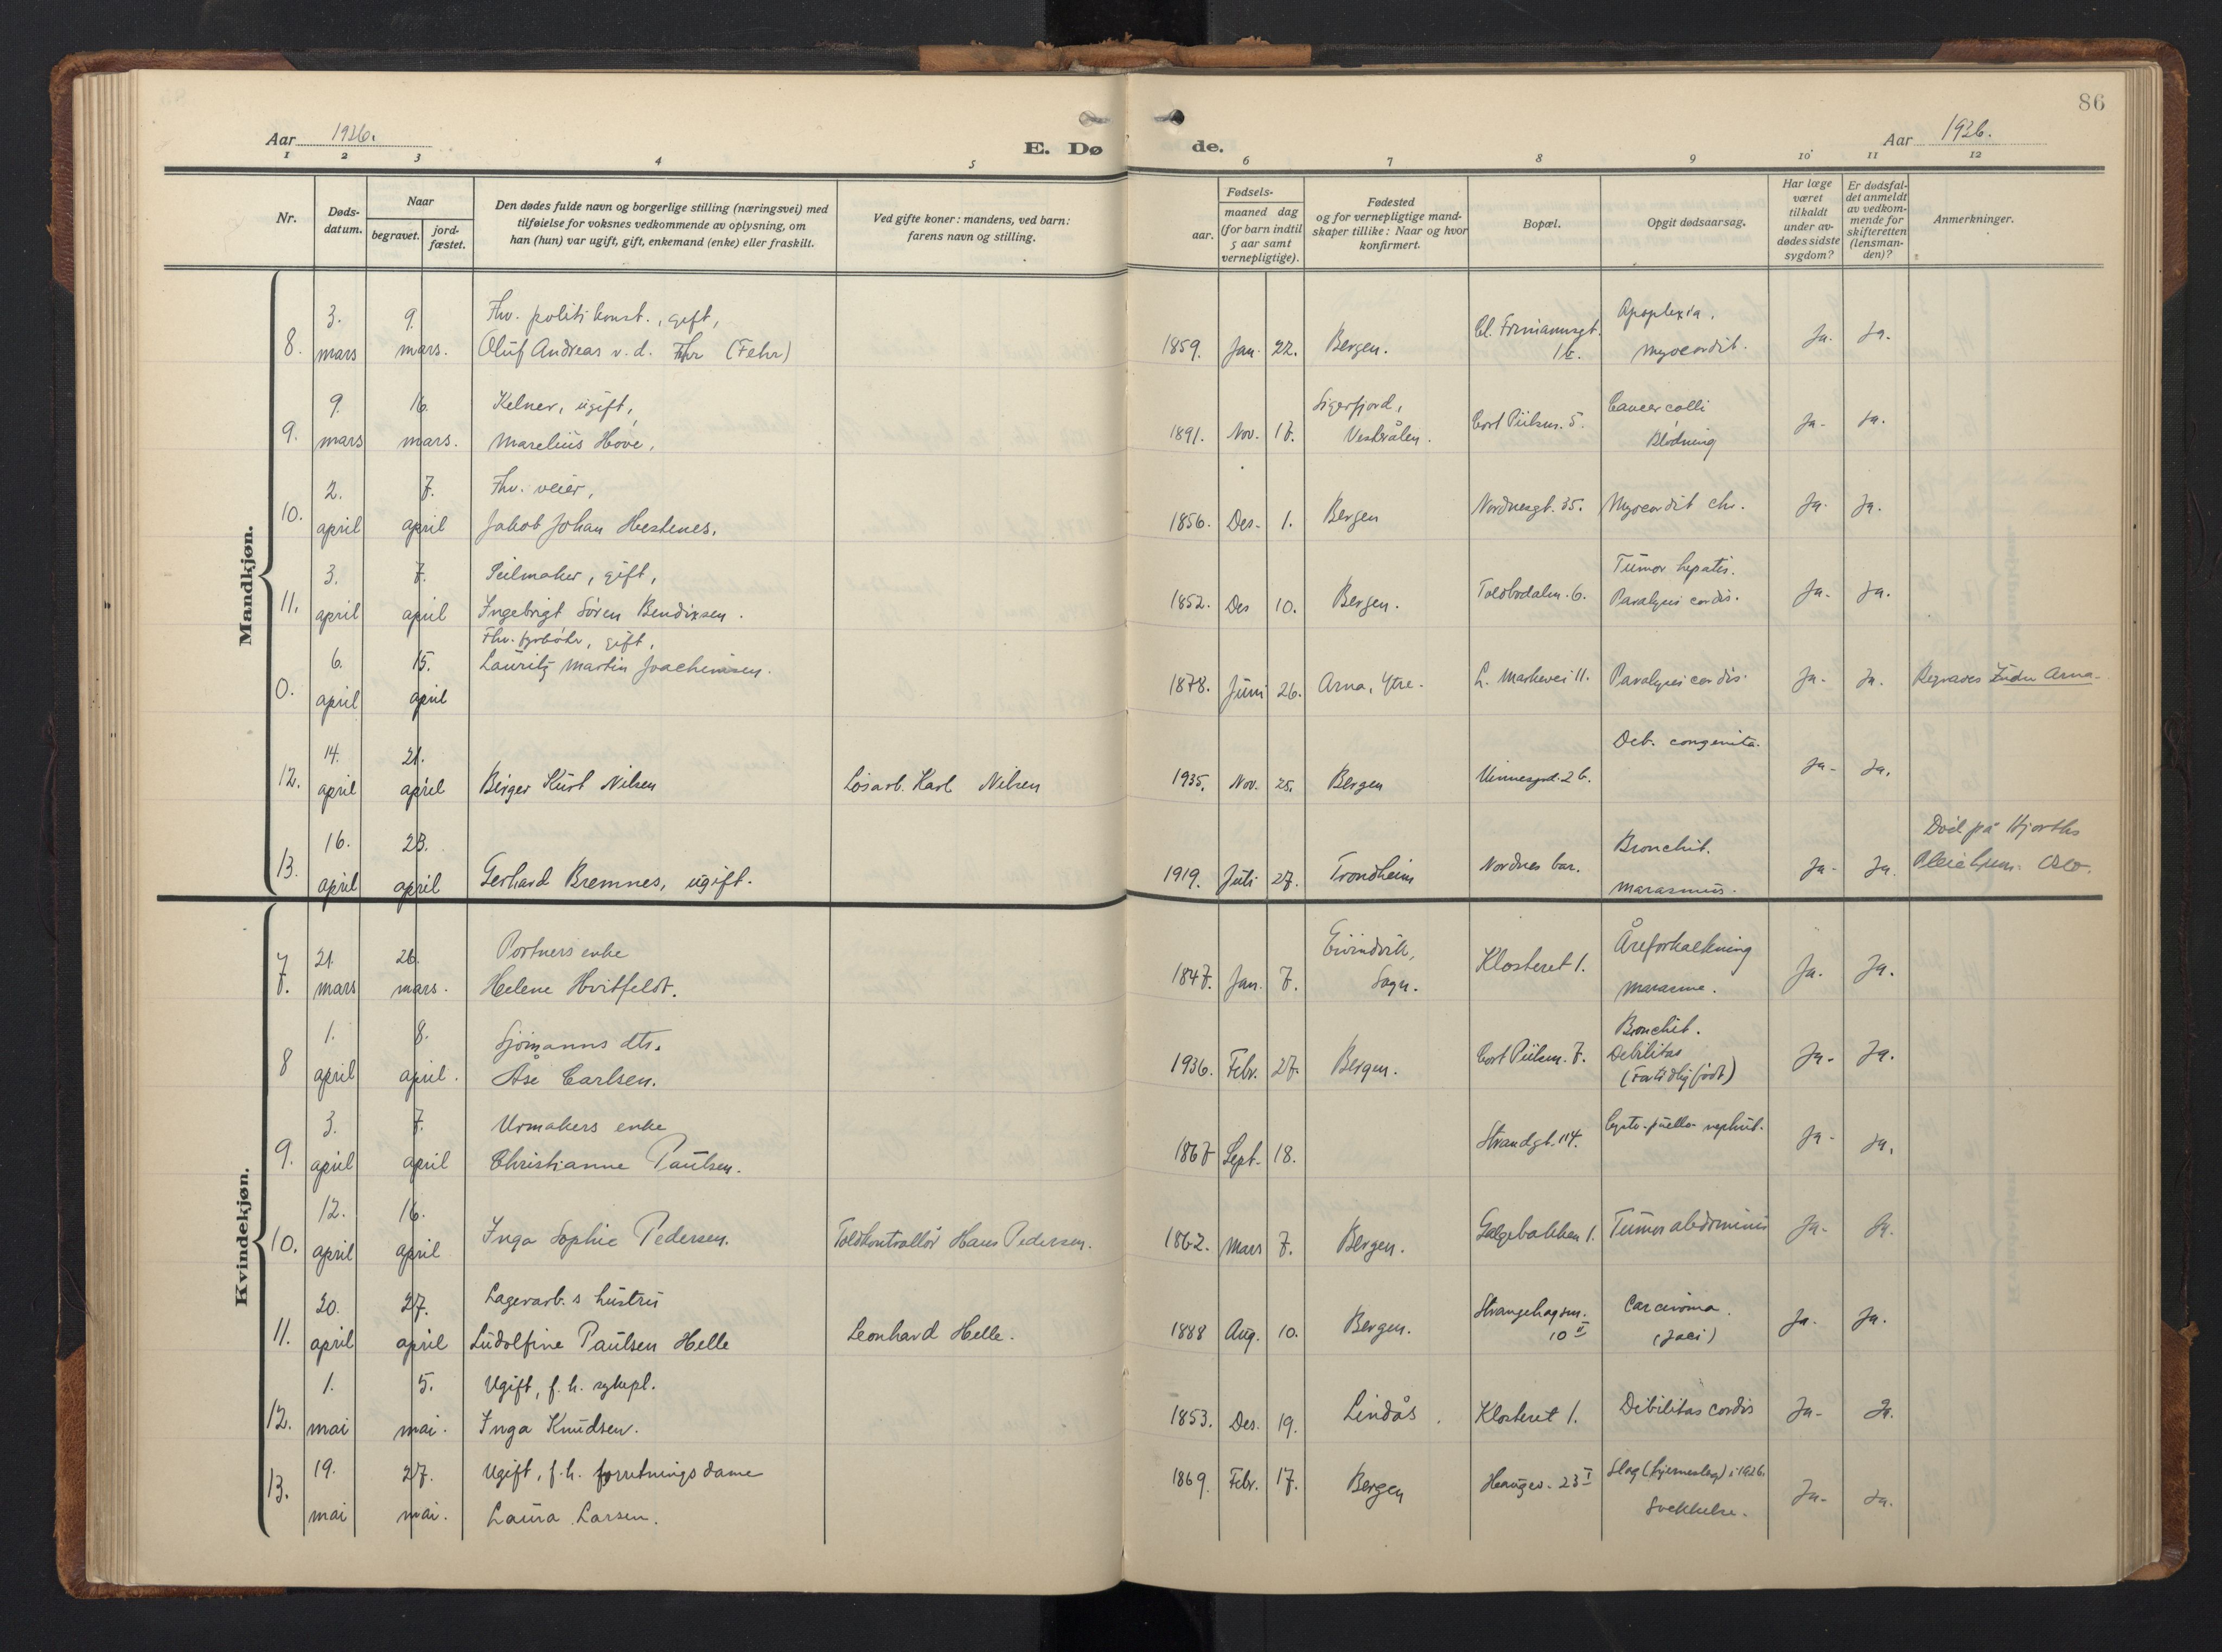 86
Aar 1936.
E. Dø
de.
Aar 1936.
1 2 3 4 5 6 7 8 9 10 11 12
Nr.
Døds-
datum.
Naar
begravet.
jord-
fæstet.
Den dødes fulde navn og borgerlige stilling (næringsvei) med
tilføielse for voksnes vedkommende av oplysning, om
han (hun) var ugift, gift, enkemand (enke) eller fraskilt.
Ved gifte koner: mandens, ved barn:
farens navn og stilling.
Fødsels-
aar.
maaned dag
(for barn indtil
5 aar samt
vernepligtige).
Fødested
og for vernepligtige mand-
skaper tillike: Naar og hvor
konfirmert.
Bopæl.
Opgit dødsaarsag.
Har læge
været
tilkaldt
under av-
dødes sidste
sygdom?
Er dødsfal-
det anmeldt
av vedkom-
mende for
skifteretten
(lensman-
den)?
Anmerkninger.
Mandkjøn.
8. 3. mars 9. mars.
Fhv. politikonst., gift,
Oluf Andreas v. d. Fehr (Fehr)
1859. Jan. 22. Bergen.
Apoplexia.
Myocardit.
Ja. Ja.
9. 9. mars 16. mars.
Kelner, ugift,
Marelius Hove,
1891. Nov. 17.
Sigerfjord,
Vesterålen.
Cort Piilsm. 5.
Cancer colli
Blødning
Ja- Ja.
10. 2. april 7. april
Fhv. veier,
Jakob Johan Hestenes.
1856. Des- 1. Bergen Nordnesgt. 35. Myocardit chr. Ja- Ja.
11. 3. april 7. april
Seilmaker, gift,
Ingebrigt Sören Bendixsen.
1852. Des 10. Bergen. Toldbodalm. 6.
Tumor hepatis.
Paralysis cordis.
Ja- Ja.
0. 6. april 15. april
Fhv. fyrbøter, gift,
Lauritz Martin Joachimsen.
1878. Juni 26. Arna, Ytre. L. Markevei 11. Paralysis cordis. Ja- Ja. Begraves Indre Arna-
12. 14. april 21. april
Birger Kurt Nilsen Løsarb. Karl Nilsen
1935. Nov. 25. Bergen
Deb. congenita.
Ja- Ja.
13. 16. april 23. april
Gerhard Bremnes, ugift.
1919. Juli 27. Trondheim Nordnes bar.
Bronchit.
Marasmus.
Ja- Ja.
Död på Hjorths
Pleiehjem. Oslo.
Kvindekjøn.
7. 21. mars 26. mars.
Portners enke
Helene Hvitfeldt.
1847. Jan. 7.
Eivindvik,
Sogn.
Klosteret 1.
Åreforkalkning
Marasme.
Ja. Ja.
8 1. april 8. april.
Sjömanns dtr.
Åse Carlsen.
1936. Febr. 27. Bergen. Cort Piilsm. 7.
Bronchit.
Debilitas
(For tidlig født)
Ja- Ja.
9. 3. april 7. april
Urmakers enke
Christianne Paulsen.
1867 Sept. 18. Strandgt. 114. Ja- Ja.
10. 12. april 16. april
Inga Sophie Pedersen. Toldkontrollör Hans Pedersen.
1862. Mars 7. Bergen. Galgebakken 1. Tumor abdominis Ja- Ja.
11. 20. april 27. april
Lagerarb.s hustru
Ludolfine Paulsen Helle Leonhard Helle.
1888 Aug. 10. Bergen.
Strangehagen.
10 II
Carcinoma.
Ja. Ja.
12. 1. mai 5. mai.
Ugift, f. h. sykepl.
Inga Knudsen.
1853. Des. 19. Lindås. Klosteret 1. Debilitas cordis Ja- Ja.
13. 19. mai 27. mai.
Ugift, f. h. forretningsdame
Laura Larsen.
1869. Febr. 17. Bergen Haugev. 23 I
Slag (hjerneslag) i 1926.
Svekkelse.
Ja- Ja.